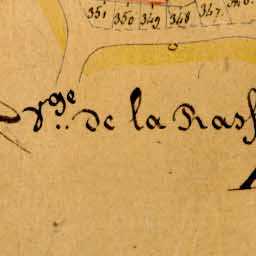 351 350 349 348 347.
Vge de la Rass